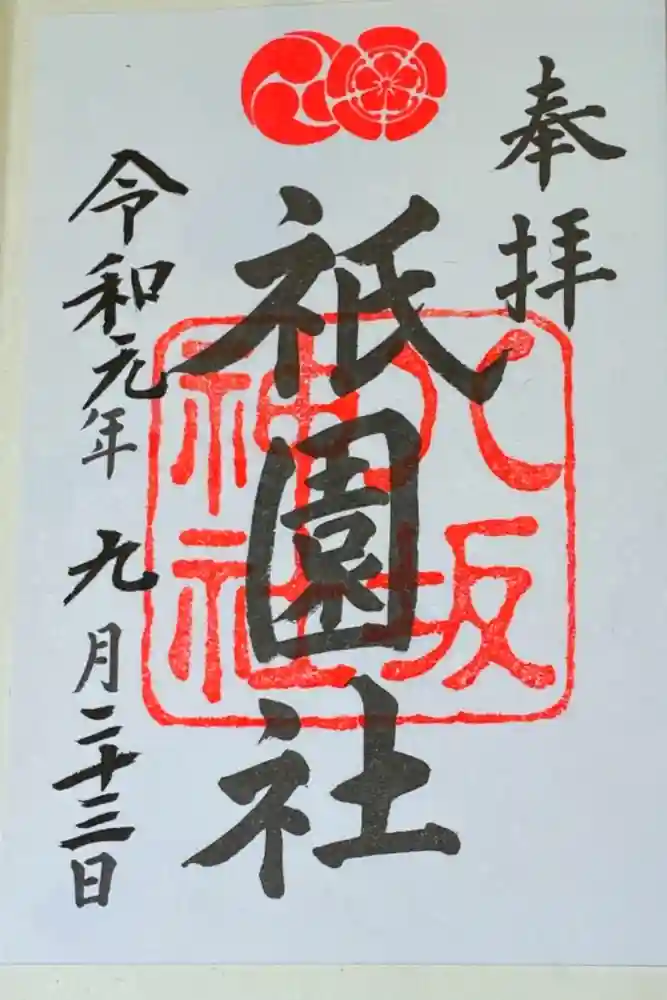 奉拝
祇園社
八坂
神社
令和元年 九月二十三日